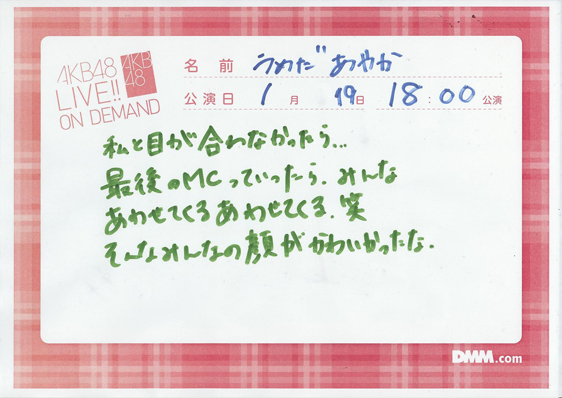 AKB48
LIVE!!
ON DEMAND
AKB
48
名 前 うめだ あやか
公演日 1月 19日 18:00 公演
私と目が合わなかったら...
最後のMCっていったら、みんな
あわせてくるあわせてくる、笑
そんなみんなの顔がかわいかったな.
DMM.com